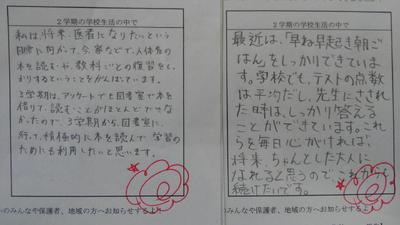 2学期の学校生活の中で
私は、将来、医者になりたいという
目標に向かって、今、家などで、人体系の
本を読むや、教科ごとの復習をしっ
かりするということをがんばっています。
3学期は、アンケートでも図書室で本を
借りて、読むことがほとんどできな
かったので、3学期から、図書室に
行って、積極的に本を読んで学習の
ためにも利用したいと思います。
のみんなや保護者、地域の方へお知らせするより
2学期の学校生活の中で
最近は、「早ね早起き朝ご
はん」をしっかりできていま
す。学校でも、テストの点数
は平均だし、先生にさされ
た時は、しっかり答える
ことができています。これ
らを毎日心がければ、
将来、ちゃんとした大人に
なれると思うので、これからも
続けたいです。
のみんなや保護者、地域の方へお知らせするより